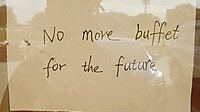 No more buffet
for the future